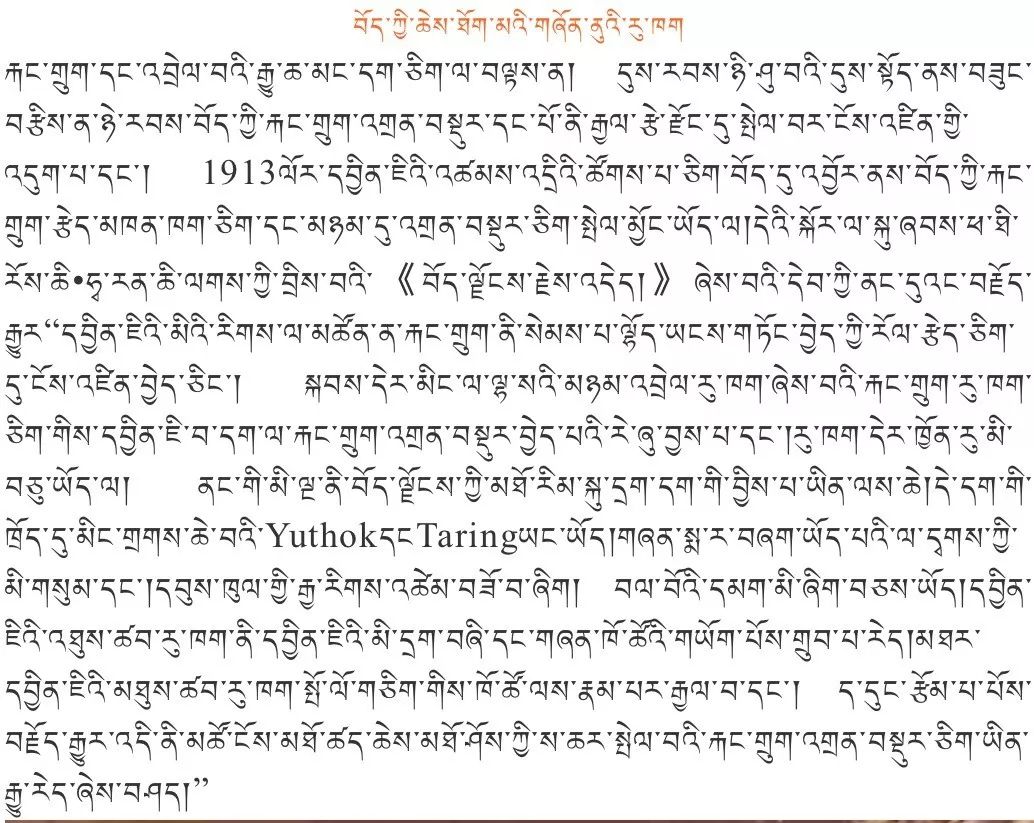 བོད་ཀྱི་ཆེས་ཐོག་མའི་གཞོན་ནུའི་རུ་ཁག
རྐང་གྲུག་དང་འབྲེལ་བའི་རྒྱུ་ཆ་མང་དག་ཅིག་ལ་བལྟས་ན། དུས་རབས་ཉི་ཤུ་བའི་དུས་སྟོད་ནས་བཟུང་
བརྩིས་ན་ཉེ་རབས་བོད་ཀྱི་རྐང་གྲུག་འགྲན་བསྡུར་དང་པོ་ནི་རྒྱལ་རྩེ་རྫོང་དུ་སྤེལ་བར་ངོས་འཛིན་གྱི་
འདུག་པ་དང་། 1913ལོར་དབྱིན་ཇིའི་འཚམས་འདྲིའི་ཚོགས་པ་ཅིག་བོད་དུ་འབྱོར་ནས་བོད་ཀྱི་རྐང་
གྲུག་རྩེད་མཁན་ཁག་ཅིག་དང་མཉམ་དུ་འགྲན་བསྡུར་ཅིག་སྤེལ་མྱོང་ཡོད་ལ།དེའི་སྐོར་ལ་སྐུ་ཞབས་ཕ་ཐི་
རོས་ཆི•ཧྭ་རན་ཆི་ལགས་ཀྱི་བྲིས་བའི་《བོད་ལྗོངས་རྗེས་འདེད།》ཞེས་བའི་དེབ་ཀྱི་ནང་དུའང་བརྗོད་
རྒྱུར“དབྱིན་ཇིའི་མིའི་རིགས་ལ་མཚོན་ན་རྐང་གྲུག་ནི་སེམས་པ་ལྷོད་ཡངས་གཏོང་བྱེད་ཀྱི་རོལ་རྩེད་ཅིག་
དུ་ངོས་འཛིན་བྱེད་ཅིང་། སྐབས་དེར་མིང་ལ་ལྷ་སའི་མཉམ་འབྲེལ་རུ་ཁག་ཞེས་བའི་རྐང་གྲུག་རུ་ཁག་
ཅིག་གིས་དབྱིན་ཇི་བ་དག་ལ་རྐང་གྲུག་འགྲན་བསྡུར་བྱེད་པའི་རེ་ཞུ་བྱས་པ་དང་།རུ་ཁག་དེར་ཁྱོན་རུ་མི་
བཅུ་ཡོད་ལ། ནང་གི་མི་ལྔ་ནི་བོད་ལྗོངས་ཀྱི་མཐོ་རིམ་སྐུ་དྲག་དག་གི་བྱིས་པ་ཡིན་ལས་ཆེ།དེ་དག་གི་
ཁྲོད་དུ་མིང་གྲགས་ཆེ་བའི་YuthokདངTaringཡང་ཡོད།གཞན་སྨ་ར་བཞག་ཡོད་པའི་ལ་དྭགས་ཀྱི་
མི་གསུམ་དང་།དབུས་ཁུལ་གྱི་རྒྱ་རིགས་འཚེམ་བཟོ་བ་ཞིག། བལ་བོའི་དམག་མི་ཞིག་བཅས་ཡོད།དབྱིན་
ཇིའི་འཐུས་ཚབ་རུ་ཁག་ནི་དབྱིན་ཇིའི་མི་དྲག་བཞི་དང་གཞན་ཁོ་ཚོའི་གཡོག་པོས་གྲུབ་པ་རེད།མཐར་
དབྱིན་ཇིའི་མཐུས་ཚབ་རུ་ཁག་སྤོ་ལོ་གཅིག་གིས་ཁོ་ཚོ་ལས་རྣམ་པར་རྒྱལ་བ་དང་། ད་དུང་རྩོམ་པ་པོས་
བརྗོད་རྒྱུར་འདི་ནི་མཚོ་ངོས་མཐོ་ཚད་ཆེས་མཐོ་ཤོས་ཀྱི་ས་ཆར་སྤེལ་བའི་རྐང་གྲུག་འགྲན་བསྡུར་ཅིག་ཡིན་
རྒྱུ་རེད་ཞེས་བཤད།”